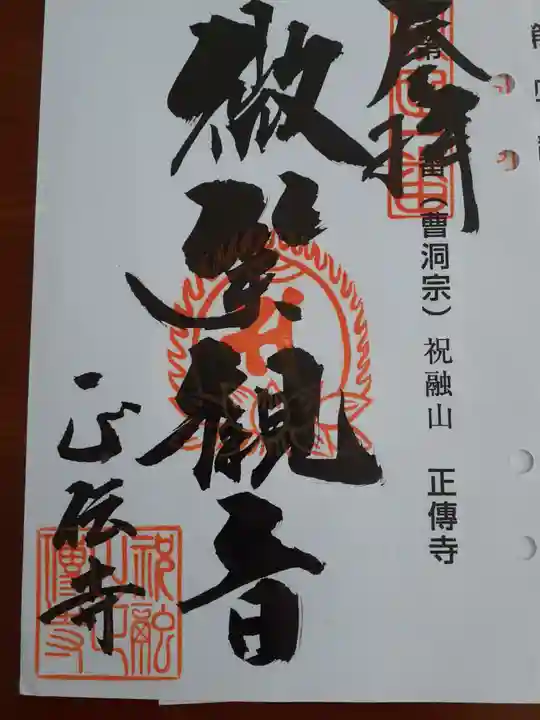 番(曹洞宗)祝融山 正傳寺
奉拝
微笑観音
正伝寺
祝融
山正
傳寺